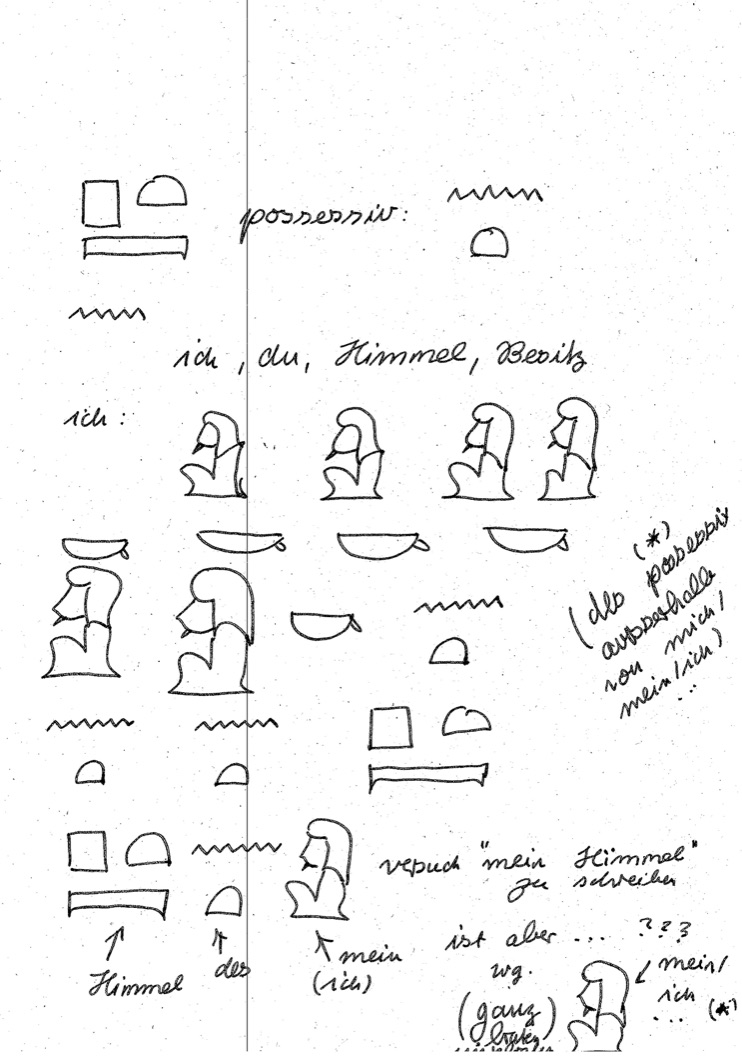 possessiv:
ich, du, Himmel, Besitz
ich:
(*)
(des possessiv
ausserhalb
von mich/
mein/ich)
...
"mein Himmel"
zu schreiben
Himmel
des
mein
(ich)
ist aber ... ???
wg.
(ganz
mein/
ich
... (*)